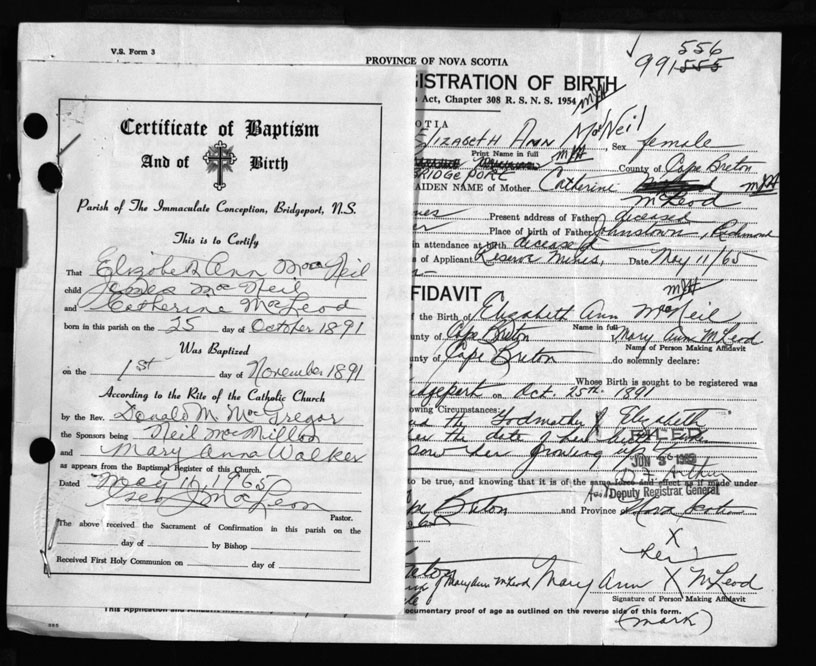 V.S. Form 3
Certificate of Baptism
And of Birth
Parish of The Immaculate Conception, Bridgeport, N.S.
This is to Certify
That Elizabeth Ann MacNeil
child James MacNeil
and Catherine McLeod
born in this parish on the 25 day of October 1891
Was Baptized
on the 1st day of November 1891
According to the Rite of the Catholic Church
by the Rev. Donald M. McGregor
the Sponsors being Neil McMillan
and Mary Anna Walker
as appears from the Baptismal Register of this Church.
Dated May 11, 1965
Pastor.
The above received the Sacrament of Confirmation in this parish on the
day of by Bishop
Received First Holy Communion on day of
556
991 555
PROVINCE OF NOVA SCOTIA
GISTRATION OF BIRTH
Act, Chapter 308 R.S.N.S. 1954
OTIA
ELIZABETH ANN McNeil, Sex female
Print Name in full County of Cape Breton
BRIDGEPORT
AIDEN NAME of Mother Catherine
McLeod
Present address of Father deceased
Place of birth of Father Johnstown, Richmond
in attendance at birth deceased
s of Applicant Reserve Mines, Date May 11/65
FFIDAVIT
f the Birth of Elizabeth Ann MacNeil
Name in full
unty of Cape Breton Mary Ann McLeod
Name of Person Making Affidavit
unty of Cape Breton do solemnly declare:
Whose Birth is sought to be registered was
dgeport on Oct. 25th. 1891
owing Circumstances:
the Godmother of Elizabeth
the date of her birth
saw her growing up
FILED
JUN 3 1965
to be true, and knowing that it is of the same force and effect as if made under
Deputy Registrar General
pe Breton and Province Nova Scotia
X
her
Mary Ann McLeod Mary Ann X McLeod
Signature of Person Making Affidavit
ocumentary proof of age as outlined on the reverse side of this form.
(mark)